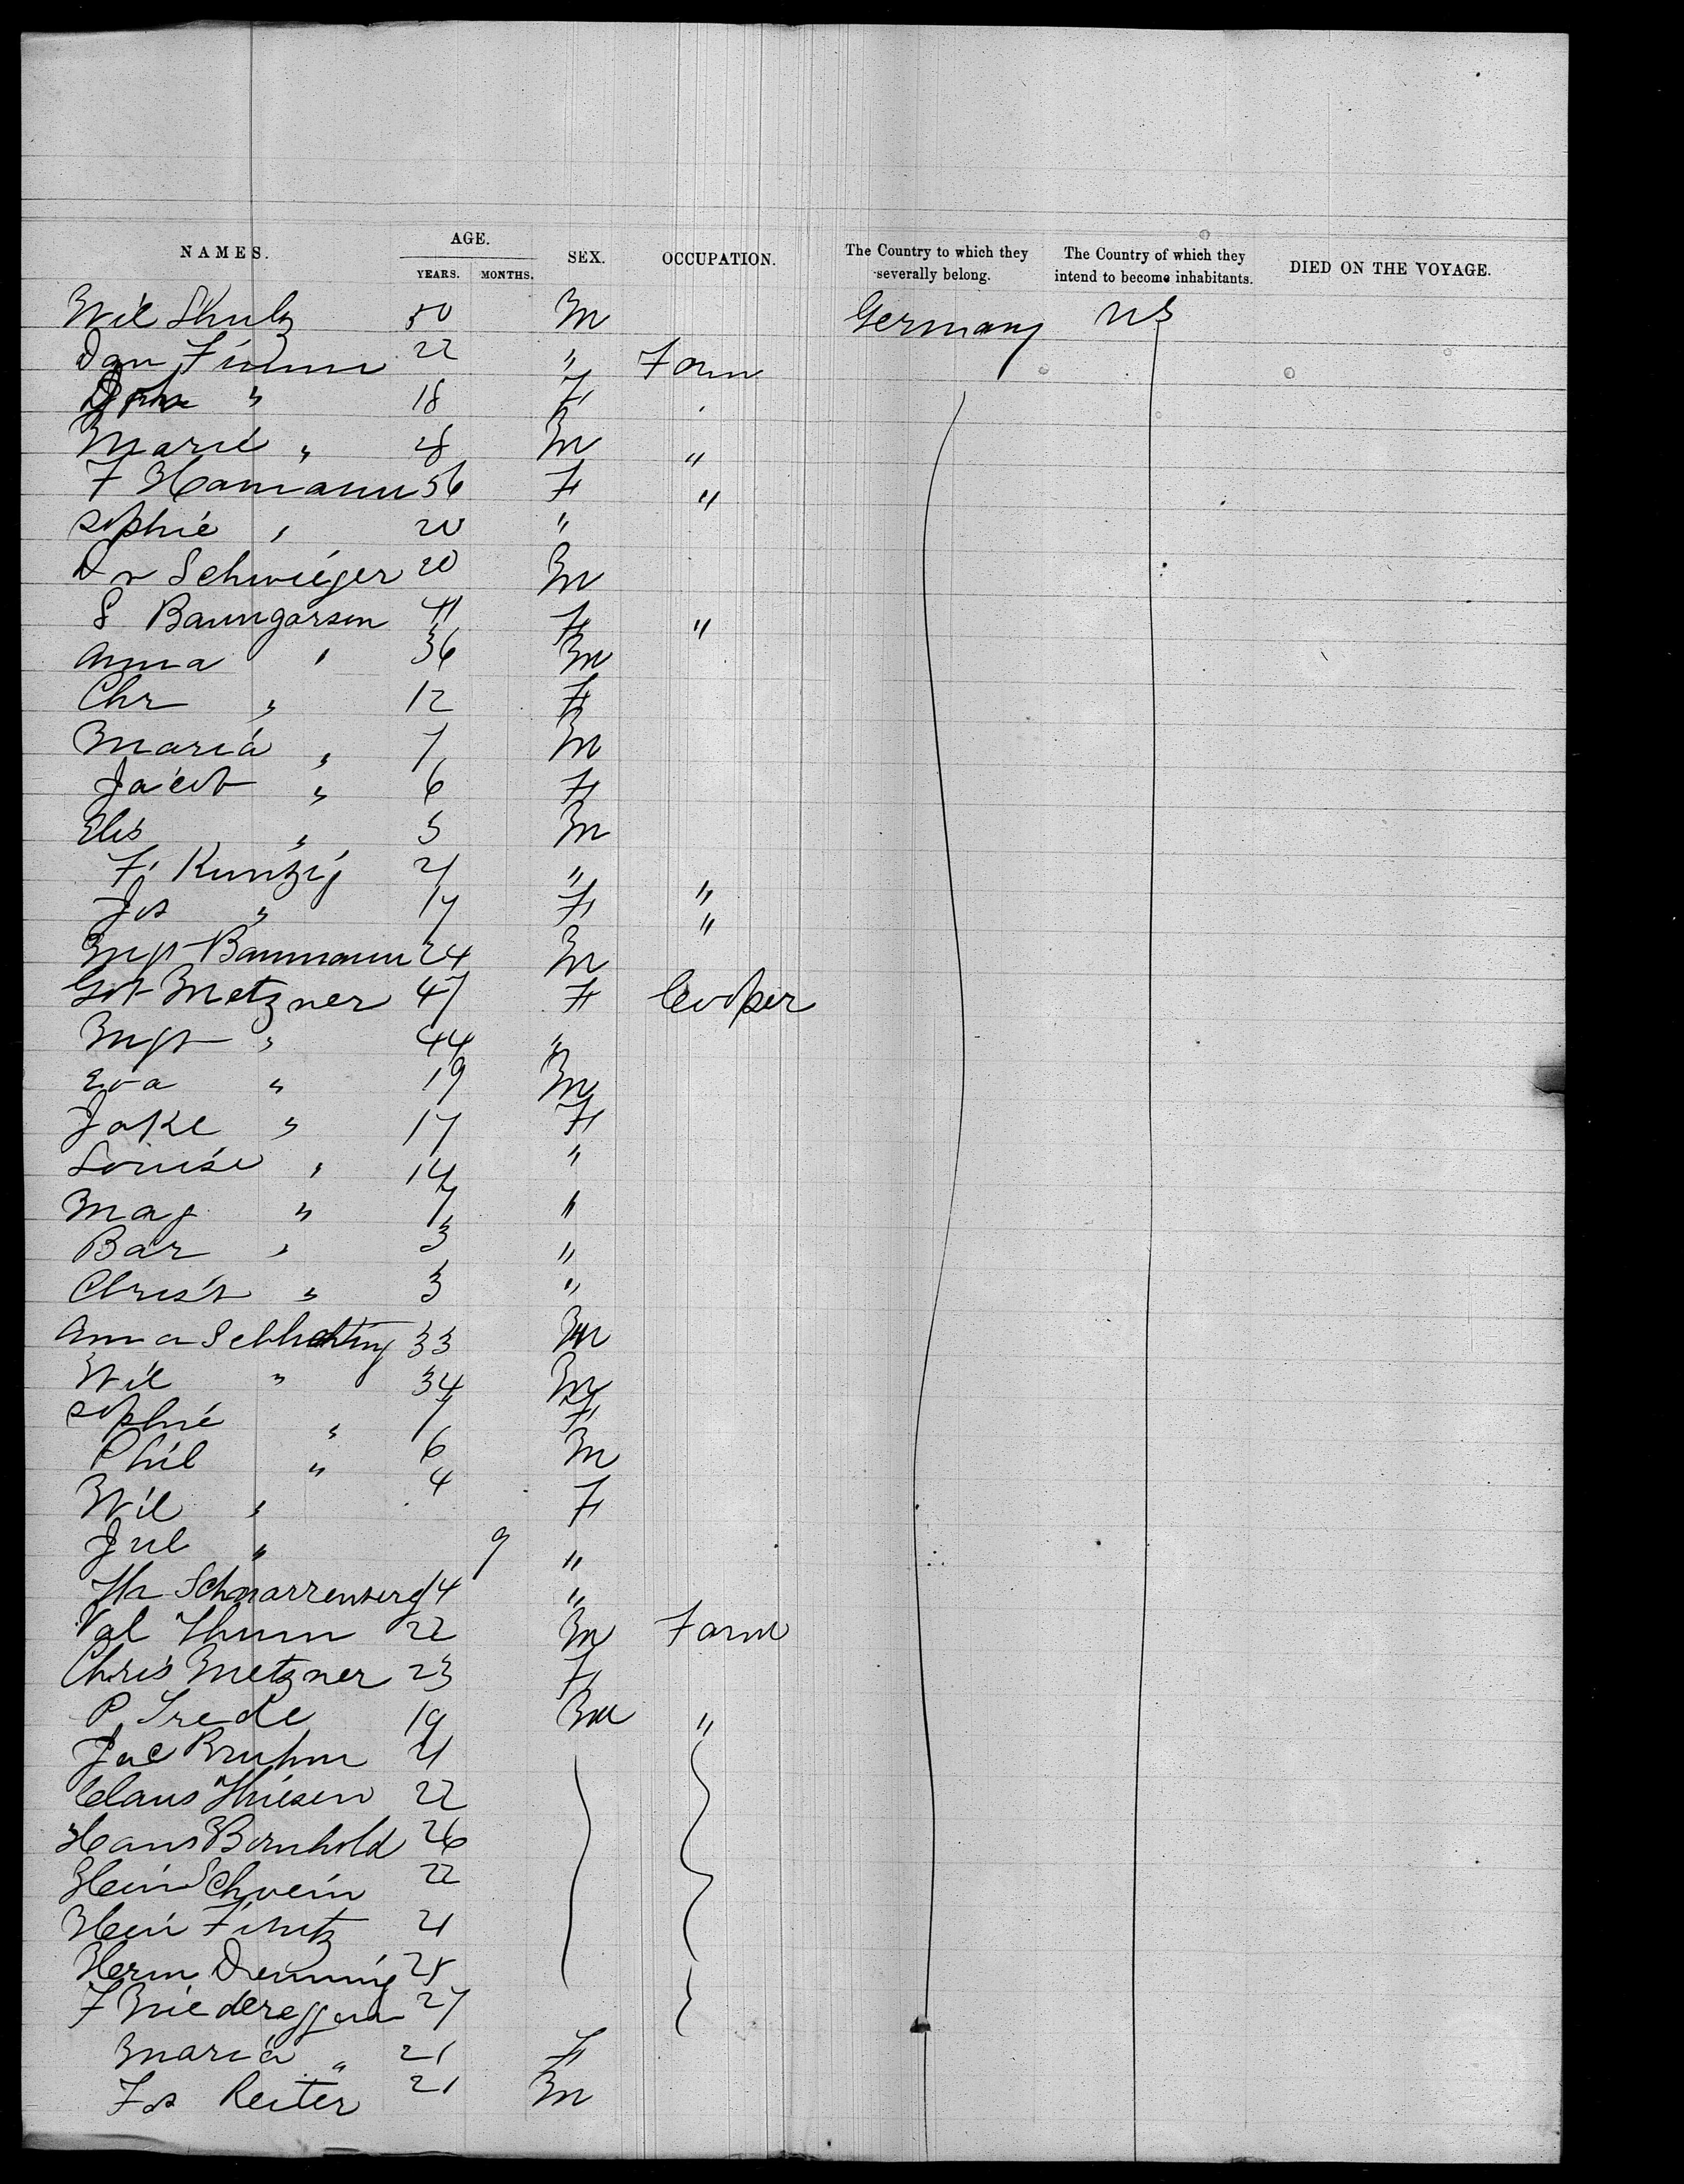 NAMES. AGE. YEARS. MONTHS. SEX. OCCUPATION. The Country to which they severally belong. The Country of which they intend to become inhabitants. DIED ON THE VOYAGE.
Wil Shulz 50 M Germany US
Dan 22 " Farm
" 18 F
Marie " 28 M "
F Hamann 56 F "
Sophie " 20 "
Schwieger 20 M
S Baumgarsen 41 F "
Anna " 36 M
Chr " 12 F
Maria " 7 M
Jacob " 6 F
Elis " 5 M
F. Kunzig 21 " "
Jos " 17 F "
Mgt Baumann 24 M
Got Metzner 47 F Cooper
Mgt " 44 "
Eva " 19 M
Jake " 17 F
Louise " 14 "
Mag " 7 "
Bar " 3 "
Christ " 3 "
Anna Schlichting 33 M
Wil " 34 M
Sophie " 7 F
Phil " 6 M
Wil " 4 F
Jul " 9 "
Schnarrenberg 14 "
Val Thum 22 M Farm
Chris Metzner 23 F
P. Trede 19 M "
Jac Bruhm 21
Claus Thiesen 22
Hans Bornhold 26
Hein Schwein 22
Hein 21
Herm 28
F Niedereggen 27
Maria " 21 F
Reiter 21 M